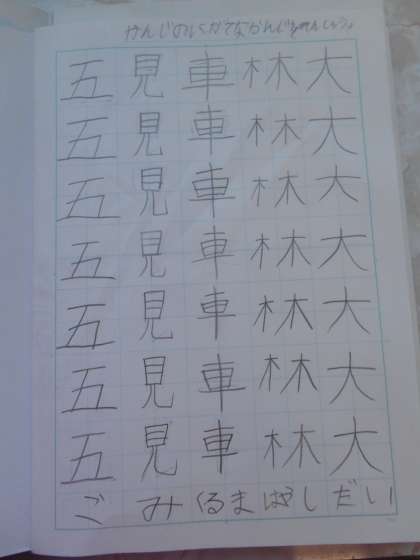 けんじのにがてなかんじれんしゅう
五 見 車 林 大
五 見 車 林 大
五 見 車 林 大
五 見 車 林 大
五 見 車 林 大
五 見 車 林 大
五 見 車 林 大
ご み くるま はやし だい